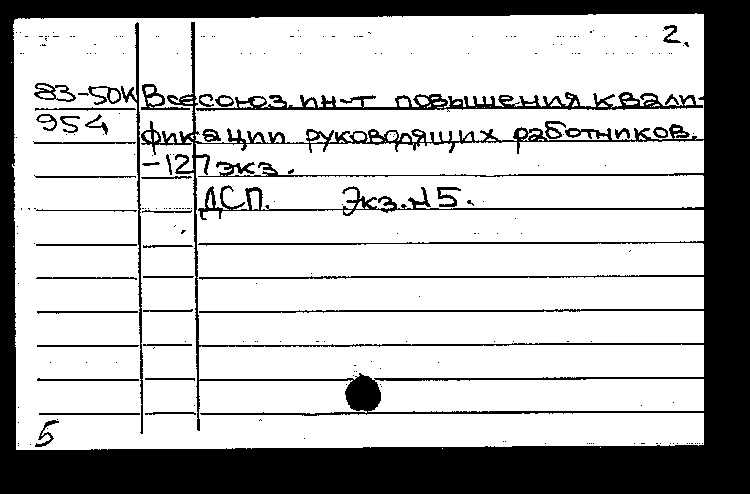 2.
83-50К Всесоюз. ин-т повышения квали-
954 фикации руководящих работников.
-127 экз.
ДСП. Экз. N 5.
5